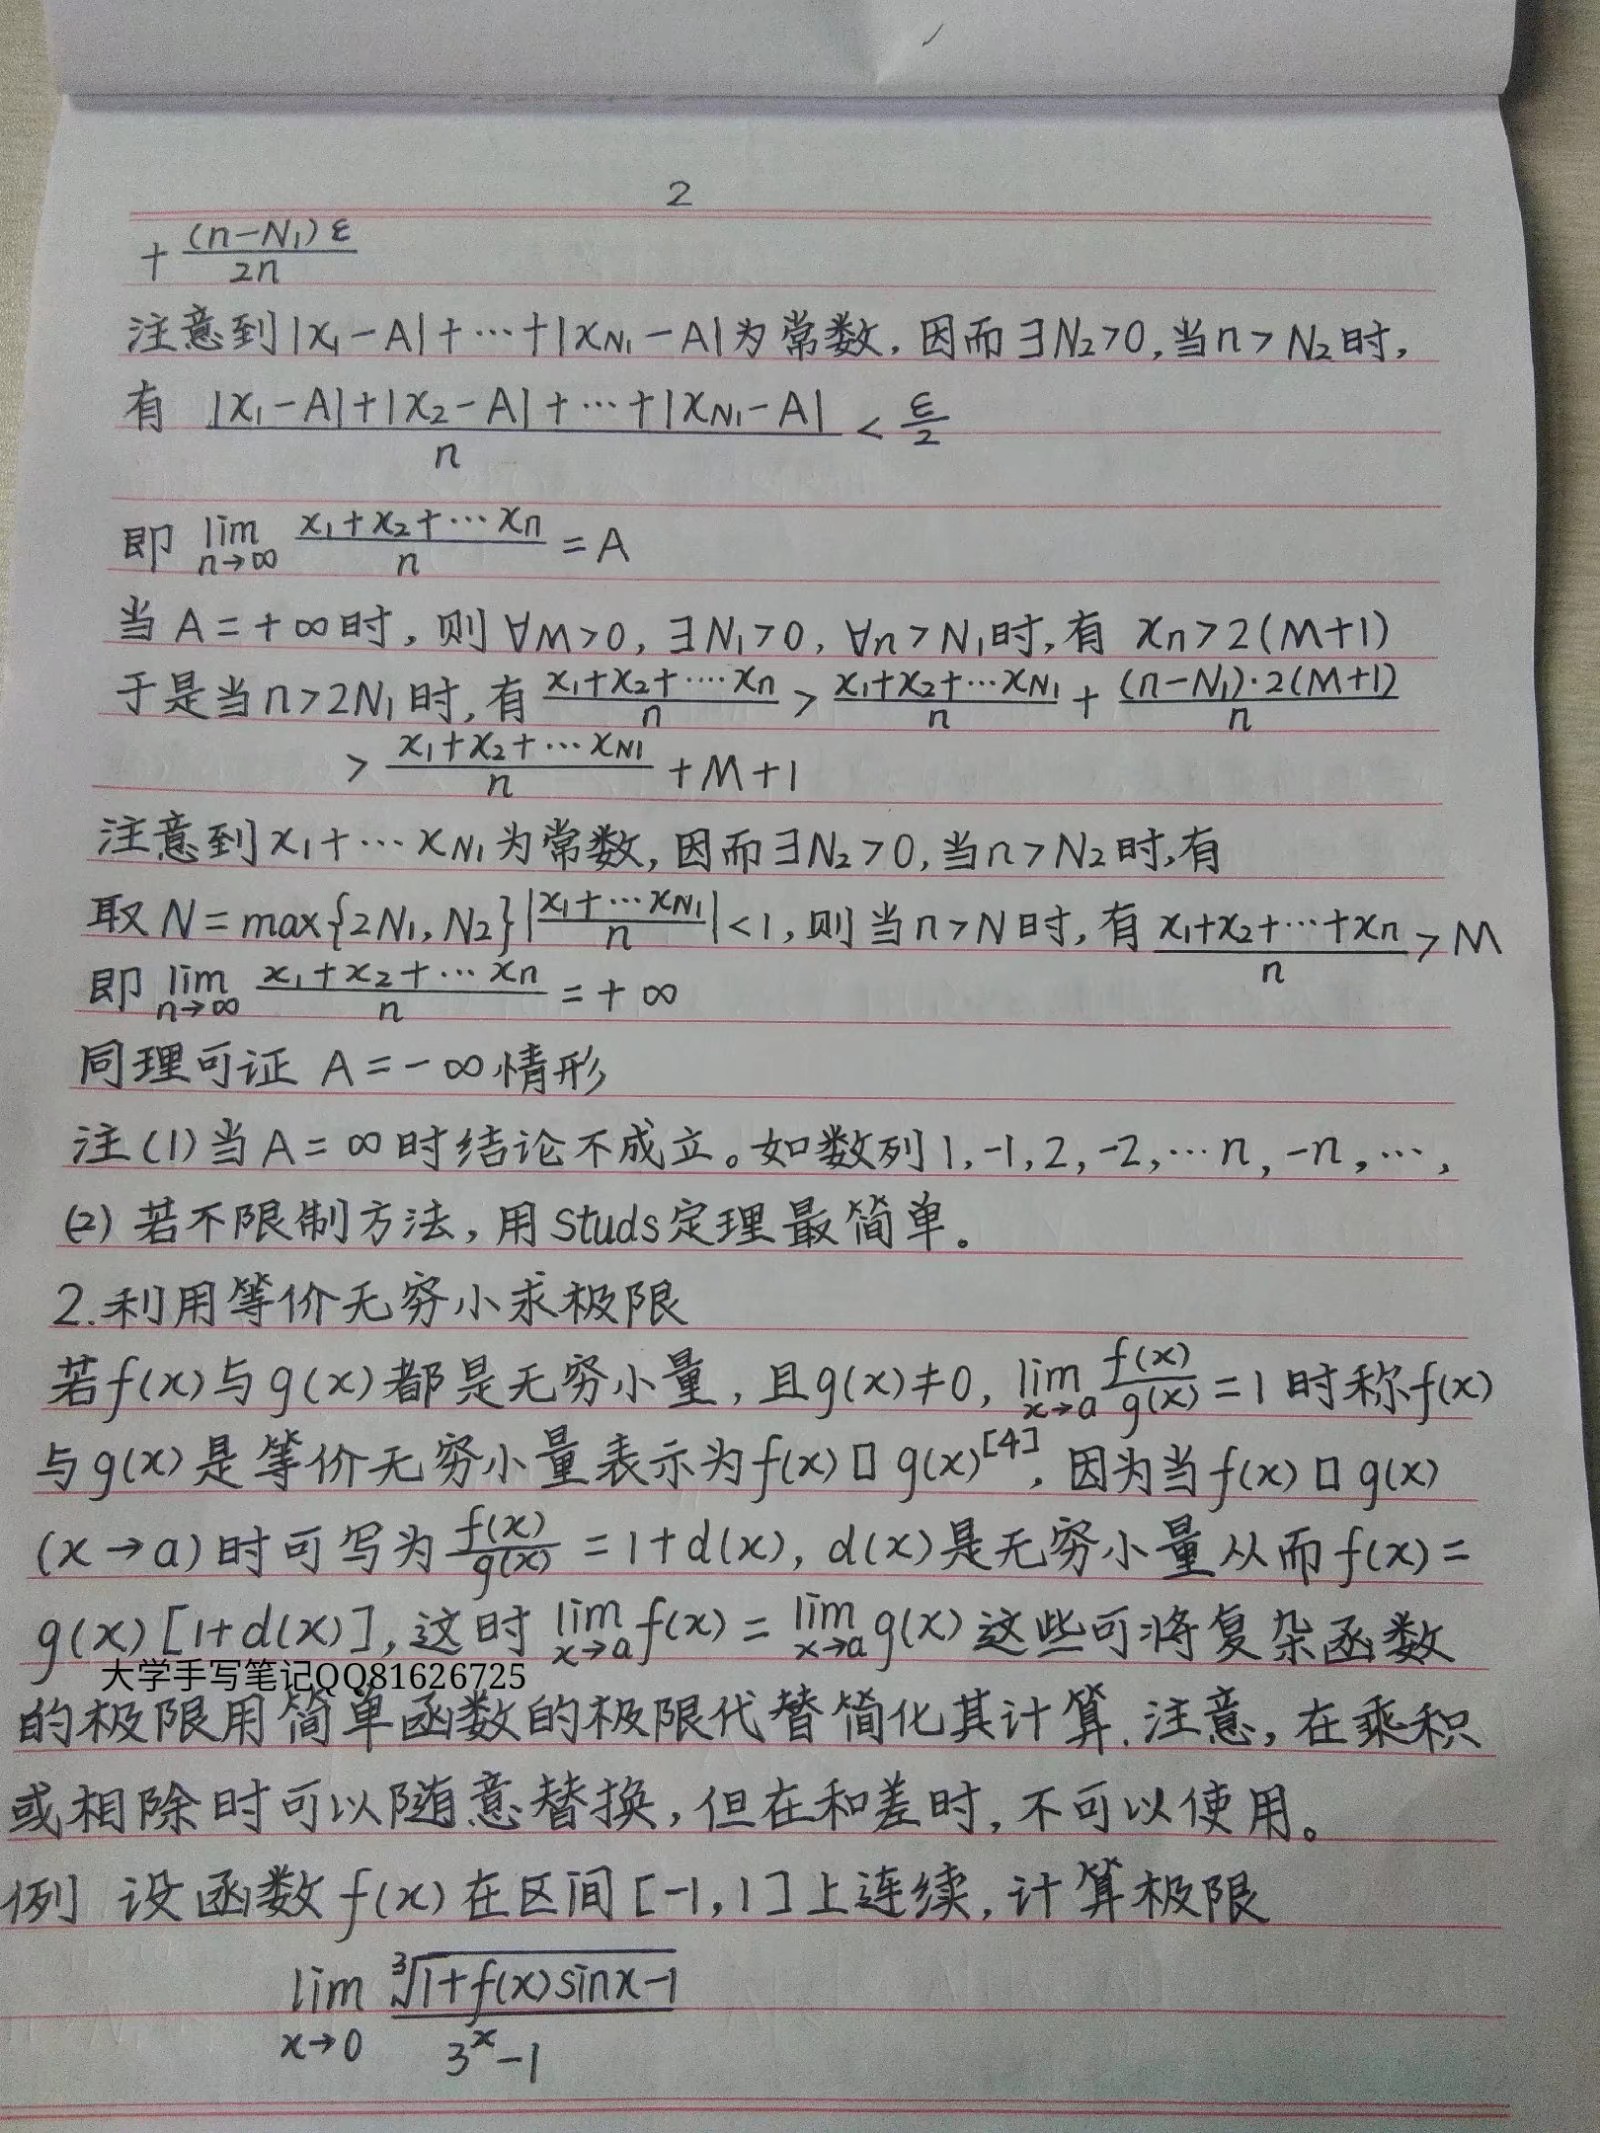 2
+ (n-N₁)ε / 2n
注意到|x₁-A|+…+|x_N₁-A|为常数,因而∃N₂>0,当n>N₂时,
有 |x₁-A|+|x₂-A|+…+|x_N₁-A| / n < ε/2
即 lim n→∞ x₁+x₂+…xn / n = A
当A=+∞时,则∀M>0,∃N₁>0,∀n>N₁时,有 xn>2(M+1)
于是当n>2N₁时,有 x₁+x₂+….xn / n > x₁+x₂+…x_N₁ / n + (n-N₁)·2(M+1) / n
> x₁+x₂+…x_N₁ / n +M+1
注意到x₁+…x_N₁为常数,因而∃N₂>0,当n>N₂时,有
取N=max{2N₁,N₂}|x₁+…x_N₁ / n|<1,则当n>N时,有 x₁+x₂+…+xn / n >M
即 lim n→∞ x₁+x₂+…xn / n =+∞
同理可证 A=-∞情形
注(1)当A=∞时结论不成立。如数列1,-1,2,-2,…n,-n,…,
(2)若不限制方法,用studs定理最简单。
2.利用等价无穷小求极限
若f(x)与g(x)都是无穷小量,且g(x)≠0, lim x→a f(x)/g(x) =1时称f(x)
与g(x)是等价无穷小量表示为f(x)□g(x)[4],因为当f(x)□g(x)
(x→a)时可写为 f(x)/g(x) =1+d(x),d(x)是无穷小量从而f(x)=
g(x)[1+d(x)],这时 lim x→a f(x)= lim x→a g(x)这些可将复杂函数
大学手写笔记QQ81626725
的极限用简单函数的极限代替简化其计算.注意,在乘积
或相除时可以随意替换,但在和差时,不可以使用。
例 设函数f(x)在区间[-1,1]上连续,计算极限
lim x→0 ∛(1+f(x)sinx-1) / 3^x-1